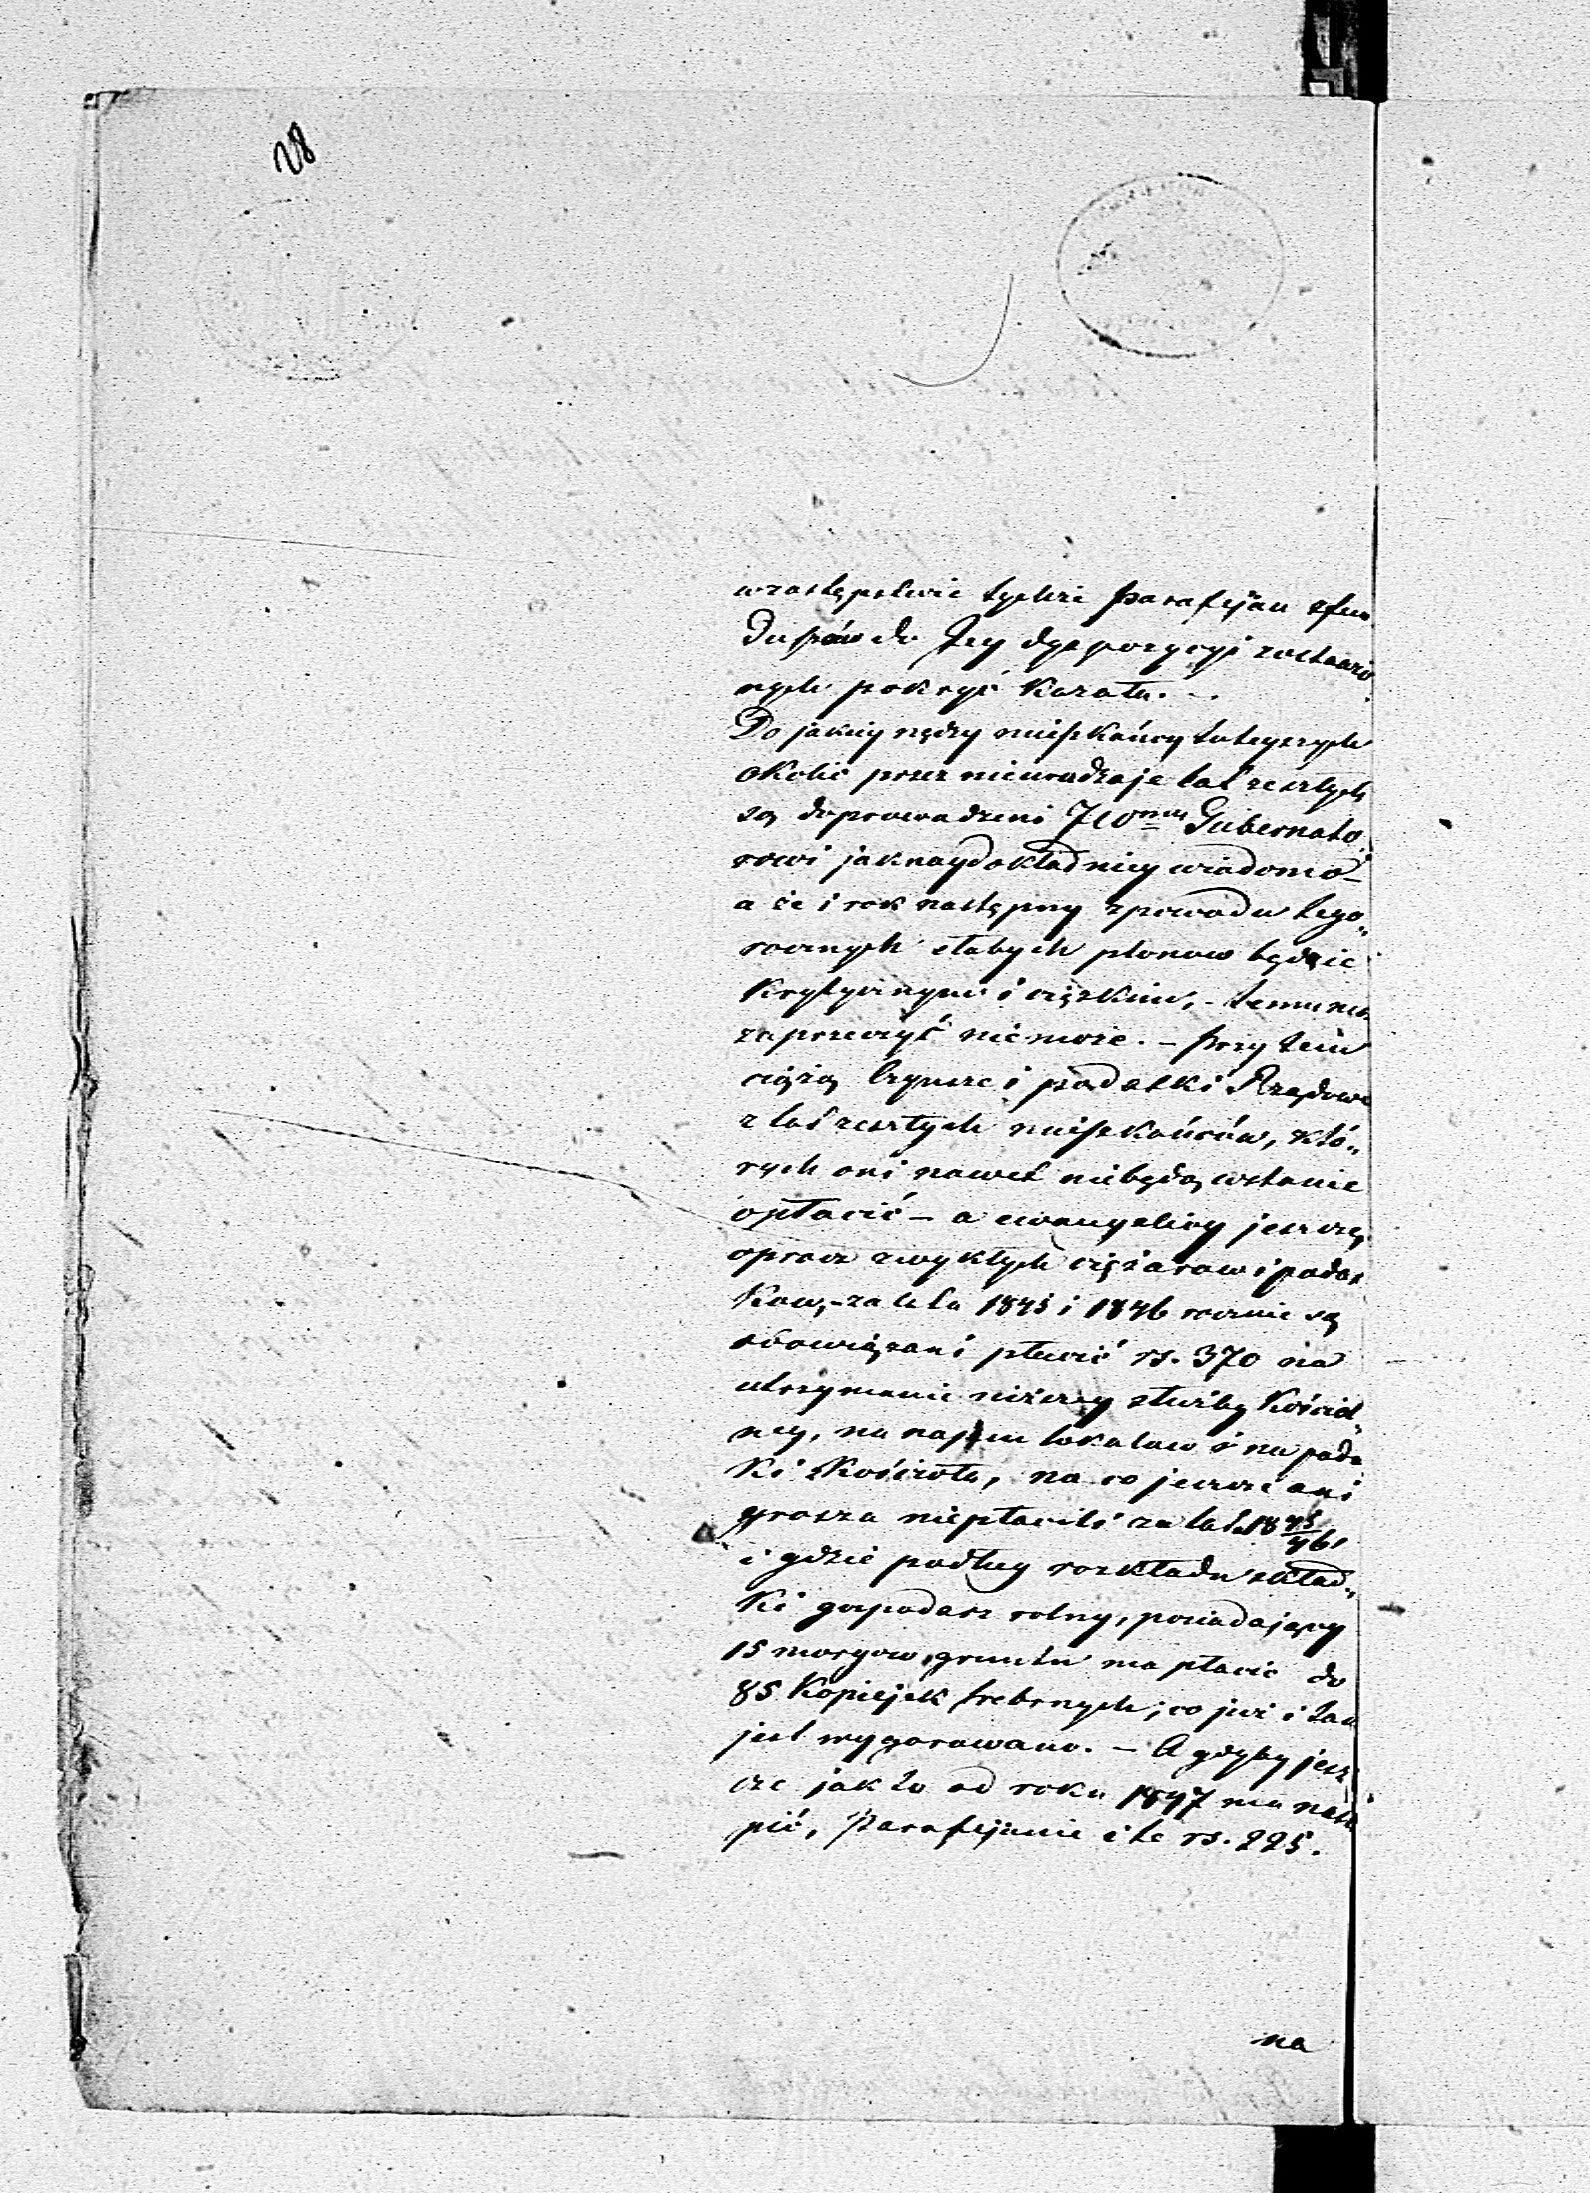 28
wzastępstwie tychże Parafijan zfun„
duszów do Jey dyspozycyi zostawio„
nych pokryć kazała. –
Do jakiey nędzy mieszkańcy tuteyszych
okolic przez nieurodzaje lat zeszłych
są doprowadzeni JW^mu Gubernato„
rowi jaknaydokładniey wiadomo –
a że i rok następny zpowodu tego„
rocznych słabych plonow będzie
krytycznym i ciężkim, – temu nikt
zaprzeczyć niemoże. – Przy tem
ciążą czynsze i podatki Rządowe
z lat zeszłych mieszkańców, któ„
rych oni nawet niebędą wstanie
opłacić – a ewangelicy jeszcze
oprocz zwykłych ciężarow i podat
kow, – za lata 1845 i 1846 rocznie są
obowiązani płacić rs. 370 na
utrzymanie niższey służby Kościel„
ney, na najem lokalow i na podat
ki z Kościoła, na co jeszcze ani
grosza niepłacili za lata 1845/46,
i gdzie podług rozkładu skład„
ki gospodarz rolny, posiadający
15 morgow gruntu ma płacić do
85 Kopiejek srebrnych; co już i tak
jest wygorowano. – A gdyby jesz
cze jak to od roku 1847 ma nastą
pić, Parafijanie i te rs. 225.
na